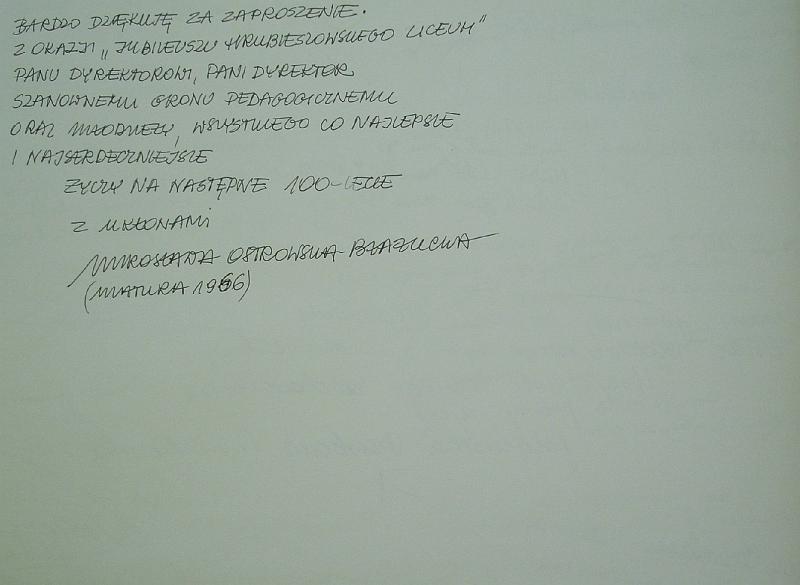 BARDZO DZIĘKUJĘ ZA ZAPROSZENIE.
Z OKAZJI „JUBILEUSZU HRUBIESZOWSKIEGO LICEUM"
PANU DYREKTOROWI, PANI DYREKTOR
SZANOWNEMU GRONU PEDAGOGICZNEMU
ORAZ MŁODZIEŻY, WSZYSTKIEGO CO NAJLEPSZE
I NAJSERDECZNIEJSZE
ŻYCZY NA NASTĘPNE 100-LECIE
Z UKŁONAMI
MIROSŁAWA OSTROWSKA-BŁAZUCKA
(MATURA 1966)